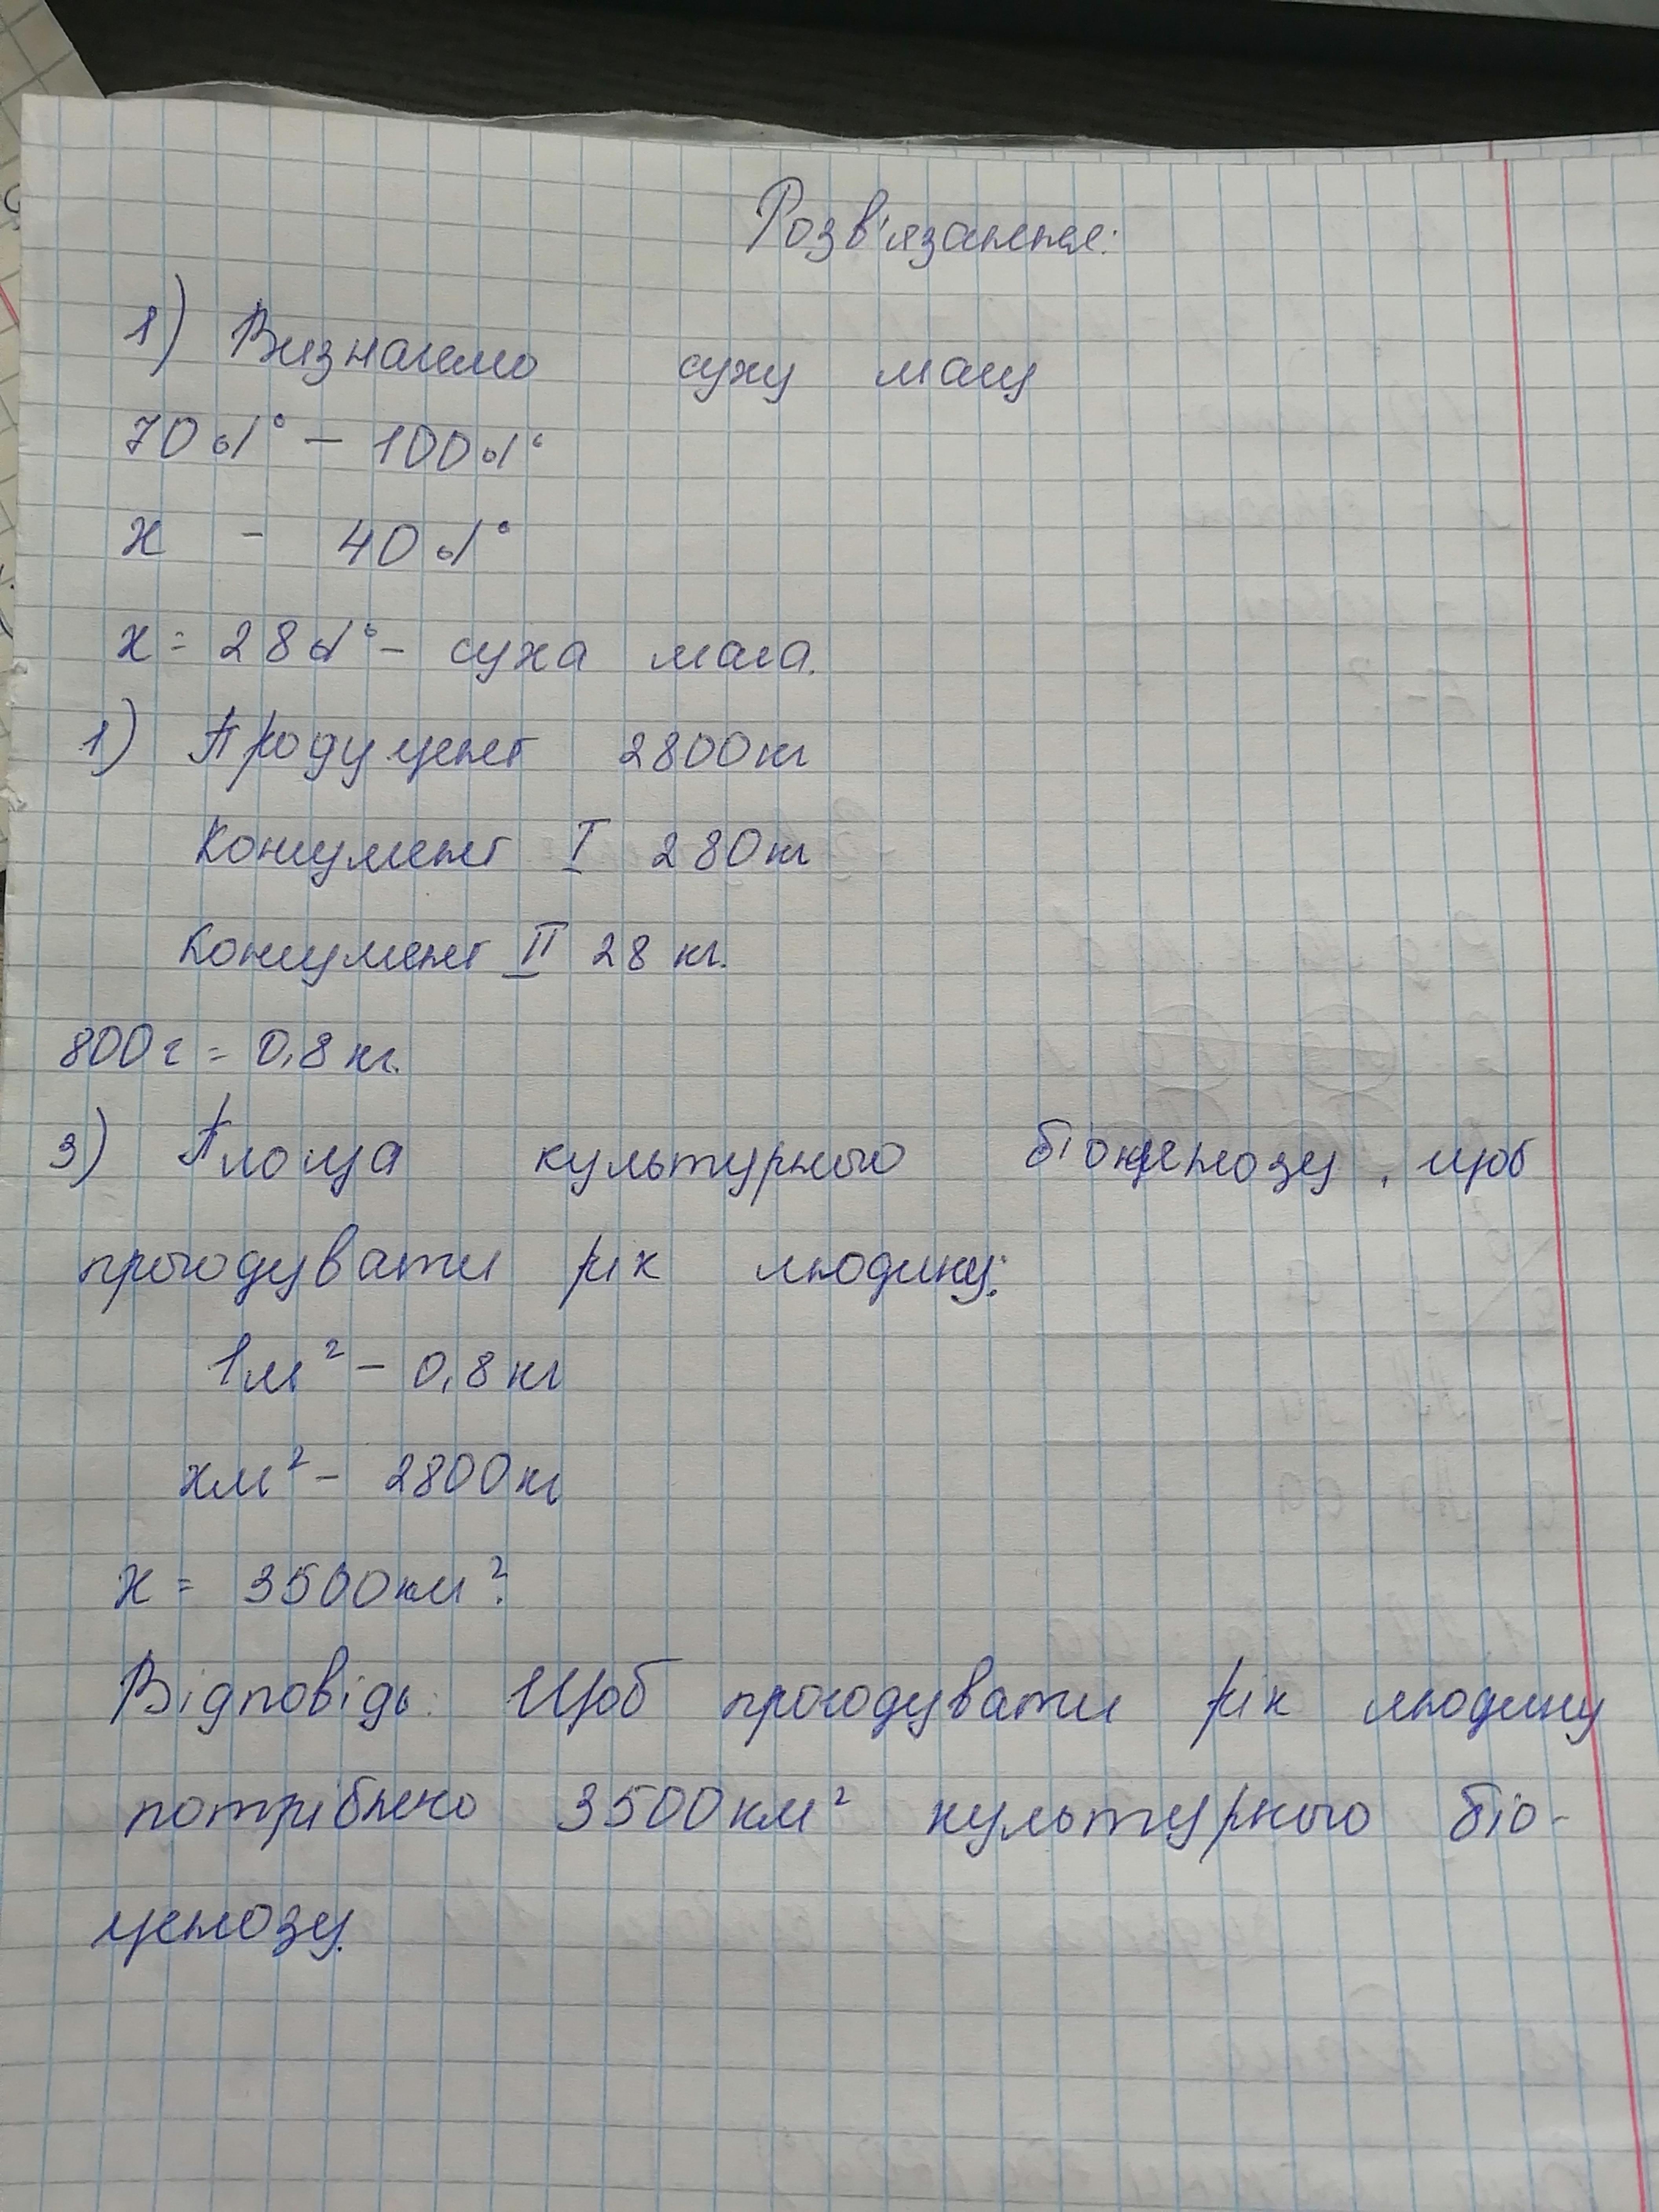 Розв'язання:
1) Визначемо суху масу
70% - 100%
х - 40%
х = 28% - суха маса.
1) Продуцент 2800кг
Консумент I 280кг
Консумент II 28 кг.
800г = 0,8 кг.
3) Площа культурного біоценозу, щоб
прогодувати рік людину:
1м² - 0,8 кг
хм² - 2800кг
х = 3500км².
Відповідь: Щоб прогодувати рік людину
потрібно 3500км² культурного біо-
ценозу.